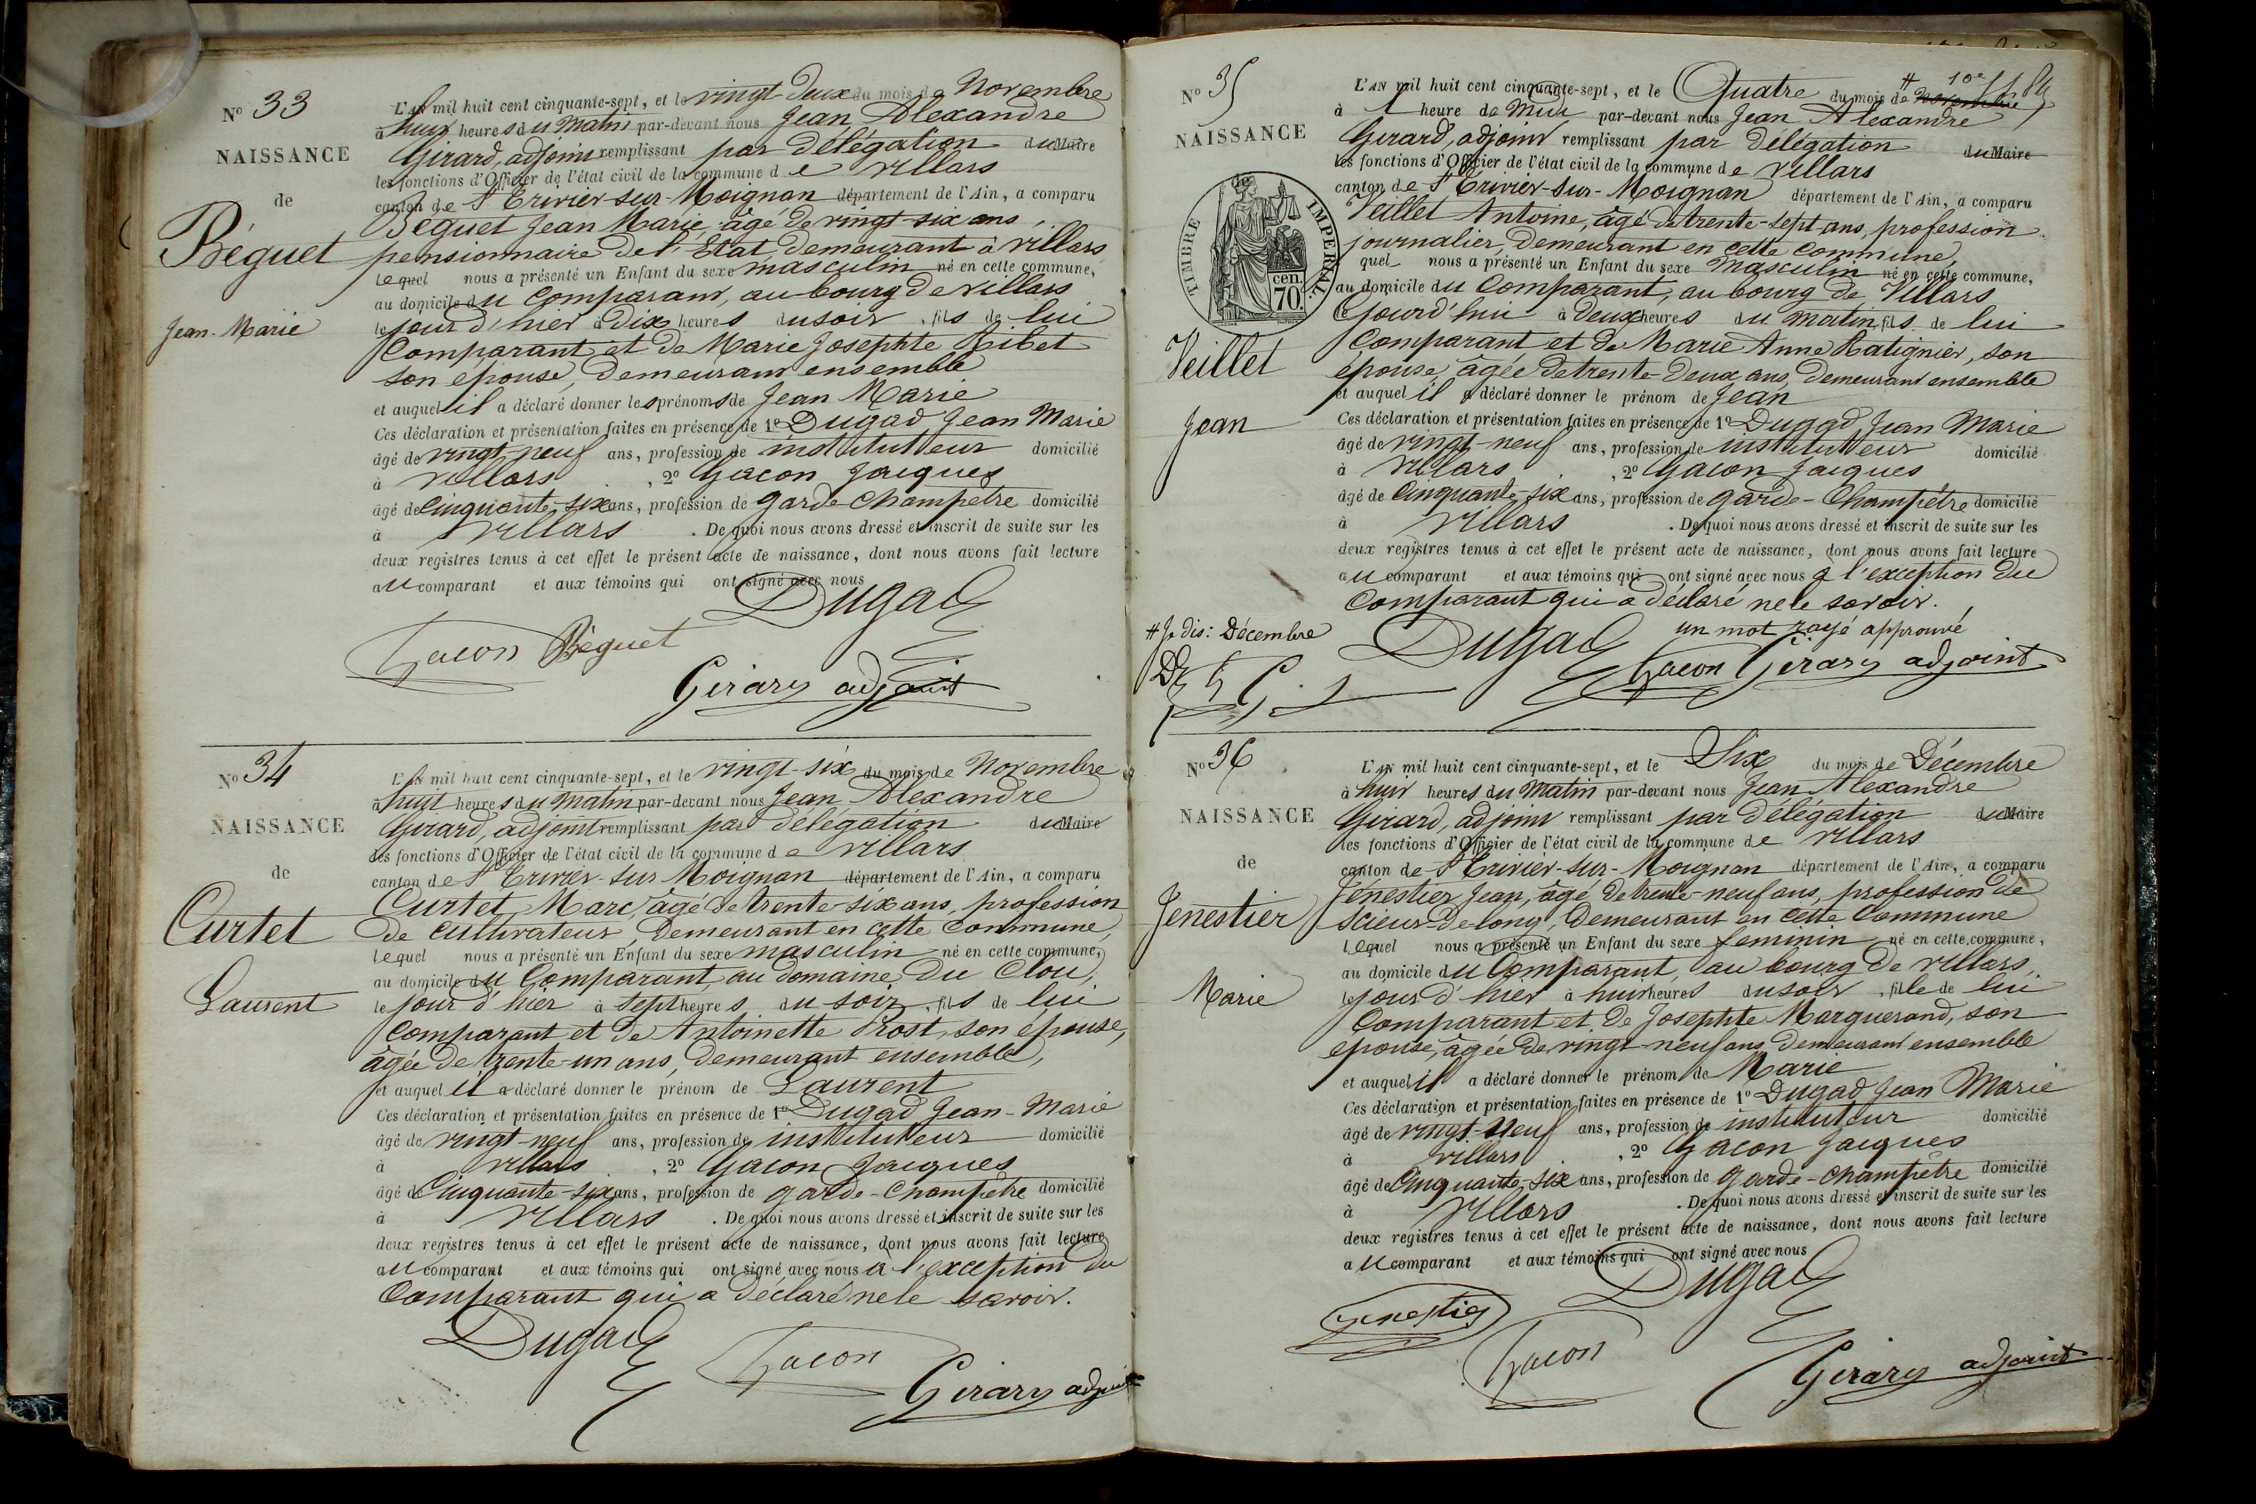 N° 33
NAISSANCE
de
Béguet
Jean-Marie
L'AN mil huit cent cinquante-sept, et le vingt-deux du mois de Novembre
à huit heures du matin par-devant nous Jean Alexandre
Girard, adjoint remplissant par délégation du Maire
les fonctions d'Officier de l'état civil de la commune de Villars
canton de St Trivier-sur-Moignan département de l'Ain, a comparu
Béguet Jean Marie, âgé de vingt-six ans,
pensionnaire de l'Etat, demeurant à Villars
lequel nous a présenté un Enfant du sexe masculin né en cette commune,
au domicile du comparant, au bourg de Villars
le jour d'hier à dix heures du soir, fils de lui
Comparant et de Marie Josephte Ribet
son épouse, demeurant ensemble
et auquel il a déclaré donner les prénoms de Jean Marie
Ces déclaration et présentation faites en présence de 1° Dugad Jean Marie
âgé de vingt-neuf ans, profession de instituteur domicilié
à Villars , 2° Gacon Jacques
âgé de cinquante-six ans, profession de garde champêtre domicilié
à Villars . De quoi nous avons dressé et inscrit de suite sur les
deux registres tenus à cet effet le présent acte de naissance, dont nous avons fait lecture
au comparant et aux témoins qui ont signé avec nous
Dugad
Gacon Béguet
Girard adjoint
N° 34
NAISSANCE
de
Curtet
Laurent
L'AN mil huit cent cinquante-sept, et le vingt-six du mois de Novembre
à huit heures du matin par-devant nous Jean Alexandre
Girard, adjoint remplissant par délégation du Maire
les fonctions d'Officier de l'état civil de la commune de Villars
canton de St Trivier-sur Moignan département de l'Ain, a comparu
Curtet Marc, âgé de trente-six ans, profession
de cultivateur, demeurant en cette commune,
lequel nous a présenté un Enfant du sexe masculin né en cette commune,
au domicile du Comparant, au domaine du Clou,
le jour d'hier à sept heures du soir, fils de lui
Comparant et de Antoinette Prost, son épouse,
âgée de trente-un ans, demeurant ensemble,
et auquel il a déclaré donner le prénom de Laurent
Ces déclaration et présentation faites en présence de 1° Dugad Jean-Marie
âgé de vingt-neuf ans, profession de instituteur domicilié
à Villars , 2° Gacon Jacques
âgé de Cinquante-six ans, profession de garde-champêtre domicilié
à Villars . De quoi nous avons dressé et inscrit de suite sur les
deux registres tenus à cet effet le présent acte de naissance, dont nous avons fait lecture
au comparant et aux témoins qui ont signé avec nous à l'exception du
Comparant qui a déclaré ne le savoir.
Dugad
Gacon
Girard adjoint
N° 35
NAISSANCE
TIMBRE IMPERIAL.
cen.
70.
Veillet
Jean
L'AN mil huit cent cinquante-sept, et le Quatre du mois de # Novembre
à 1 heure de Midi par-devant nous Jean Alexandre
Girard, adjoint remplissant par délégation du Maire
les fonctions d'Officier de l'état civil de la commune de Villars
canton de St Trivier-sur-Moignan département de l'Ain, a comparu
Veillet Antoine, âgé de trente-sept ans, profession
journalier, demeurant en cette commune,
quel nous a présenté un Enfant du sexe Masculin né en cette commune,
au domicile du Comparant, au bourg de Villars
Cejourd'hui à deux heures du matin, fils de lui
Comparant et de Marie Anne Ratignier, son
épouse, âgée de trente-deux ans, demeurant ensemble
et auquel il a déclaré donner le prénom de Jean
Ces déclaration et présentation faites en présence de 1° Dugad Jean Marie
âgé de vingt-neuf ans, profession de instituteur domicilié
à Villars , 2° Gacon Jacques
âgé de Cinquante-six ans, profession de garde-Champêtre domicilié
à Villars . De quoi nous avons dressé et inscrit de suite sur les
deux registres tenus à cet effet le présent acte de naissance, dont nous avons fait lecture
au comparant et aux témoins qui ont signé avec nous à l'exception du
Comparant qui a déclaré ne le savoir.
# Je dis: Décembre
un mot rayé approuvé
Dugad
Gacon Girard adjoint
N° 36
NAISSANCE
de
Jenestier
Marie
L'AN mil huit cent cinquante-sept, et le Six du mois de Décembre
à huit heures du matin par-devant nous Jean Alexandre
Girard, adjoint remplissant par délégation du Maire
les fonctions d'Officier de l'état civil de la commune de Villars
canton de St Trivier-sur-Moignan département de l'Ain, a comparu
Jénestier Jean, âgé de trente-neuf ans, profession de
Scieur-de-long, demeurant en cette Commune
lequel nous a présenté un Enfant du sexe feminin né en cette commune,
au domicile du Comparant, au bourg de Villars,
le jour d'hier à huit heures du soir, fille de lui
Comparant et de Josephte Marguerand, son
épouse, âgée de vingt-neuf ans, demeurant ensemble
et auquel il a déclaré donner le prénom de Marie
Ces déclaration et présentation faites en présence de 1° Dugad Jean Marie
âgé de vingt-neuf ans, profession de instituteur domicilié
à Villars , 2° Gacon Jacques
âgé de Cinquante-six ans, profession de garde-champêtre domicilié
à Villars . De quoi nous avons dressé et inscrit de suite sur les
deux registres tenus à cet effet le présent acte de naissance, dont nous avons fait lecture
au comparant et aux témoins qui ont signé avec nous
Dugad
Genestier
Gacon
Girard adjoint